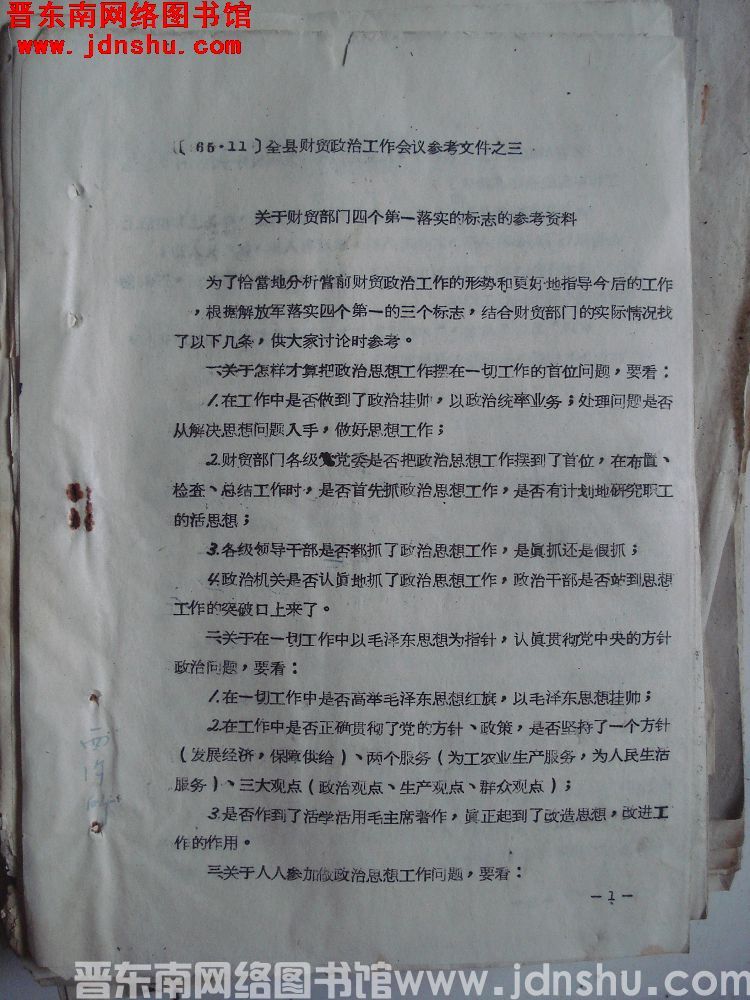 晋东南网络图书馆
www.jdnshu.com
〔65·11〕全县财贸政治工作会议参考文件之三
关于财贸部门四个第一落实的标志的参考资料
为了恰當地分析當前财贸政治工作的形势和更好地指导今后的工作
，根据解放军落实四个第一的三个标志，结合财贸部门的实际情况找
了以下几条，供大家讨论时参考。
一、关于怎样才算把政治思想工作摆在一切工作的首位问题，要看：
1.在工作中是否做到了政治挂帅，以政治统率业务；处理问题是否
从解决思想问题入手，做好思想工作；
2.财贸部门各级党委是否把政治思想工作摆到了首位，在布置、
检查、总结工作时，是否首先抓政治思想工作，是否有计划地研究职工
的活思想；
3.各级领导干部是否都抓了政治思想工作，是眞抓还是假抓；
4.政治机关是否认眞地抓了政治思想工作，政治干部是否站到思想
工作的突破口上来了。
二、关于在一切工作中以毛泽东思想为指针，认眞贯彻党中央的方针
政治问题，要看：
1.在一切工作中是否高举毛泽东思想红旗，以毛泽东思想挂帅；
2.在工作中是否正确贯彻了党的方针、政策，是否坚持了一个方针
（发展经济，保障供给）、两个服务（为工农业生产服务，为人民生活
服务）、三大观点（政治观点、生产观点、群众观点）；
3.是否作到了活学活用毛主席著作，眞正起到了改造思想，改进工
作的作用。
三、关于人人参加做政治思想工作问题，要看：
—1—
晋东南网络图书馆www.jdnshu.com